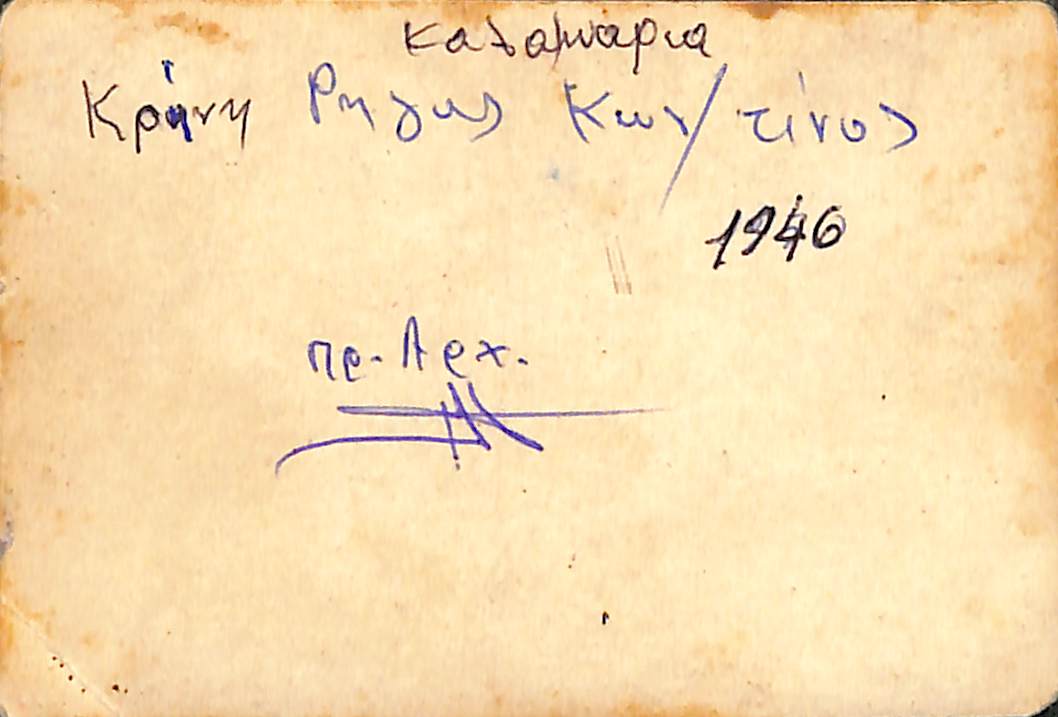 καλαμαρια
Κρήνη Ρηγας Κων/τίνος
1946
πρ. Αρχ.